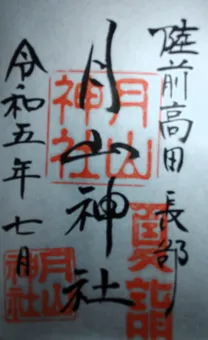 陸前高田 長部
月山神社
令和五年 七月
月山神社
夏詣
月山神社